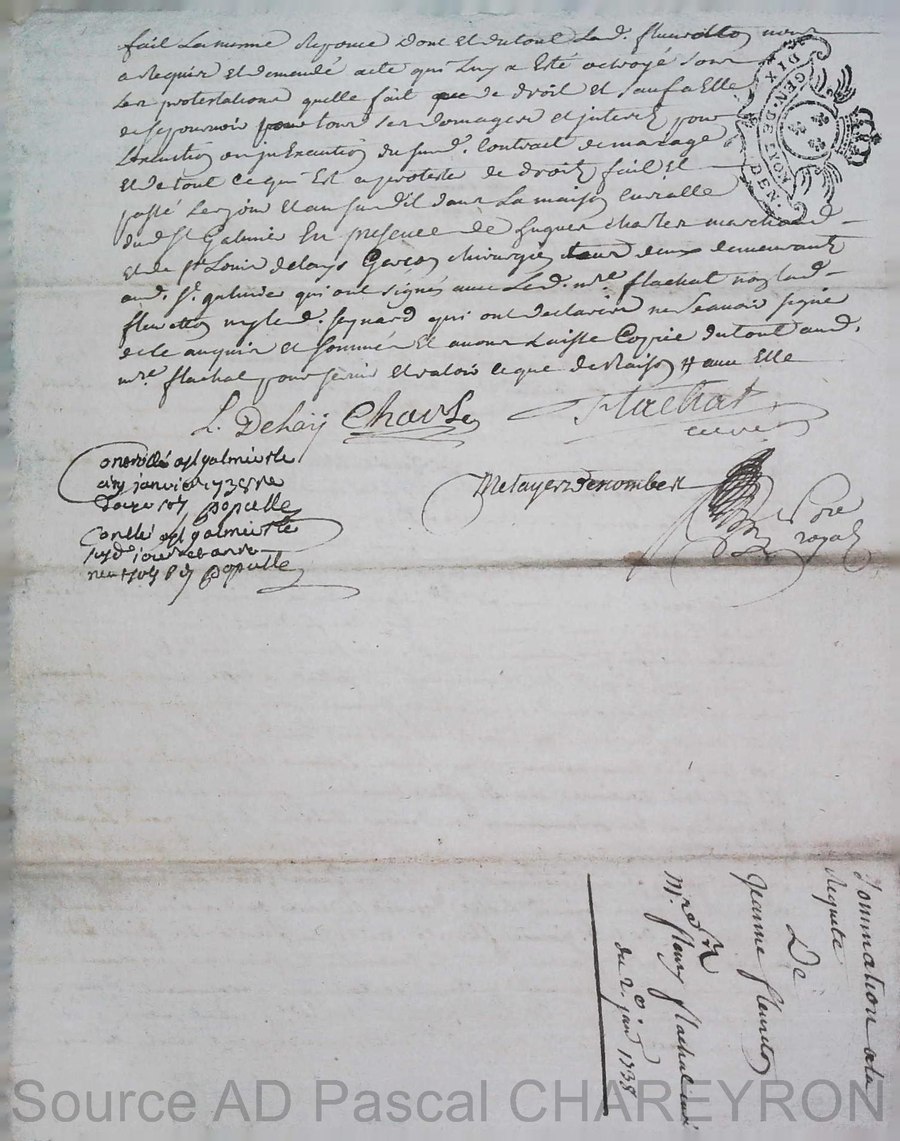 fait La mesme Reponce Dont Et dutout Lad. fleuretton nous
a Requis Et demandé acte qui Luy a Esté octroyé sous
Les protestations quelle fait que de droit Et sauf a Elle
de se pourvoir pour tous ses domages Et interets pour
Lexecution ou inExecution du susd. Contrat de mariage
Et de tout Ce qui Est a protesté de droit fait Et
passé Les jour Et an susdit dans La maison
dud St Galmier En presence de hugues charles marchand
Et de Sr Louis dehays Garçon chirurgien tous deux demeurant
aud. St. galmier qui ont signés avec Led. mre. flachat non lad.
fleuretton ny led. peynard qui ont declarées ne scavoir signé
de ce anquis et sommés Et avons Laissé Coppie dutout aud.
mre. flachat pour servir Et valoir ce que de Raison avec Elle
L. Dehaÿ Charles Flachat
curé
Metayer
No.re
royal
Controllé a st galmier le
janvier 1738
douze sols populle
Conllé a st galmier le
susd jour
neuf sols populle
DIX DEN.
GEN. DE LYON
Sommation a la
Requete
De
Jeanne fleuretton
Mre fleury flachat curé
du 2.o janv 1738
Source AD Pascal CHAREYRON